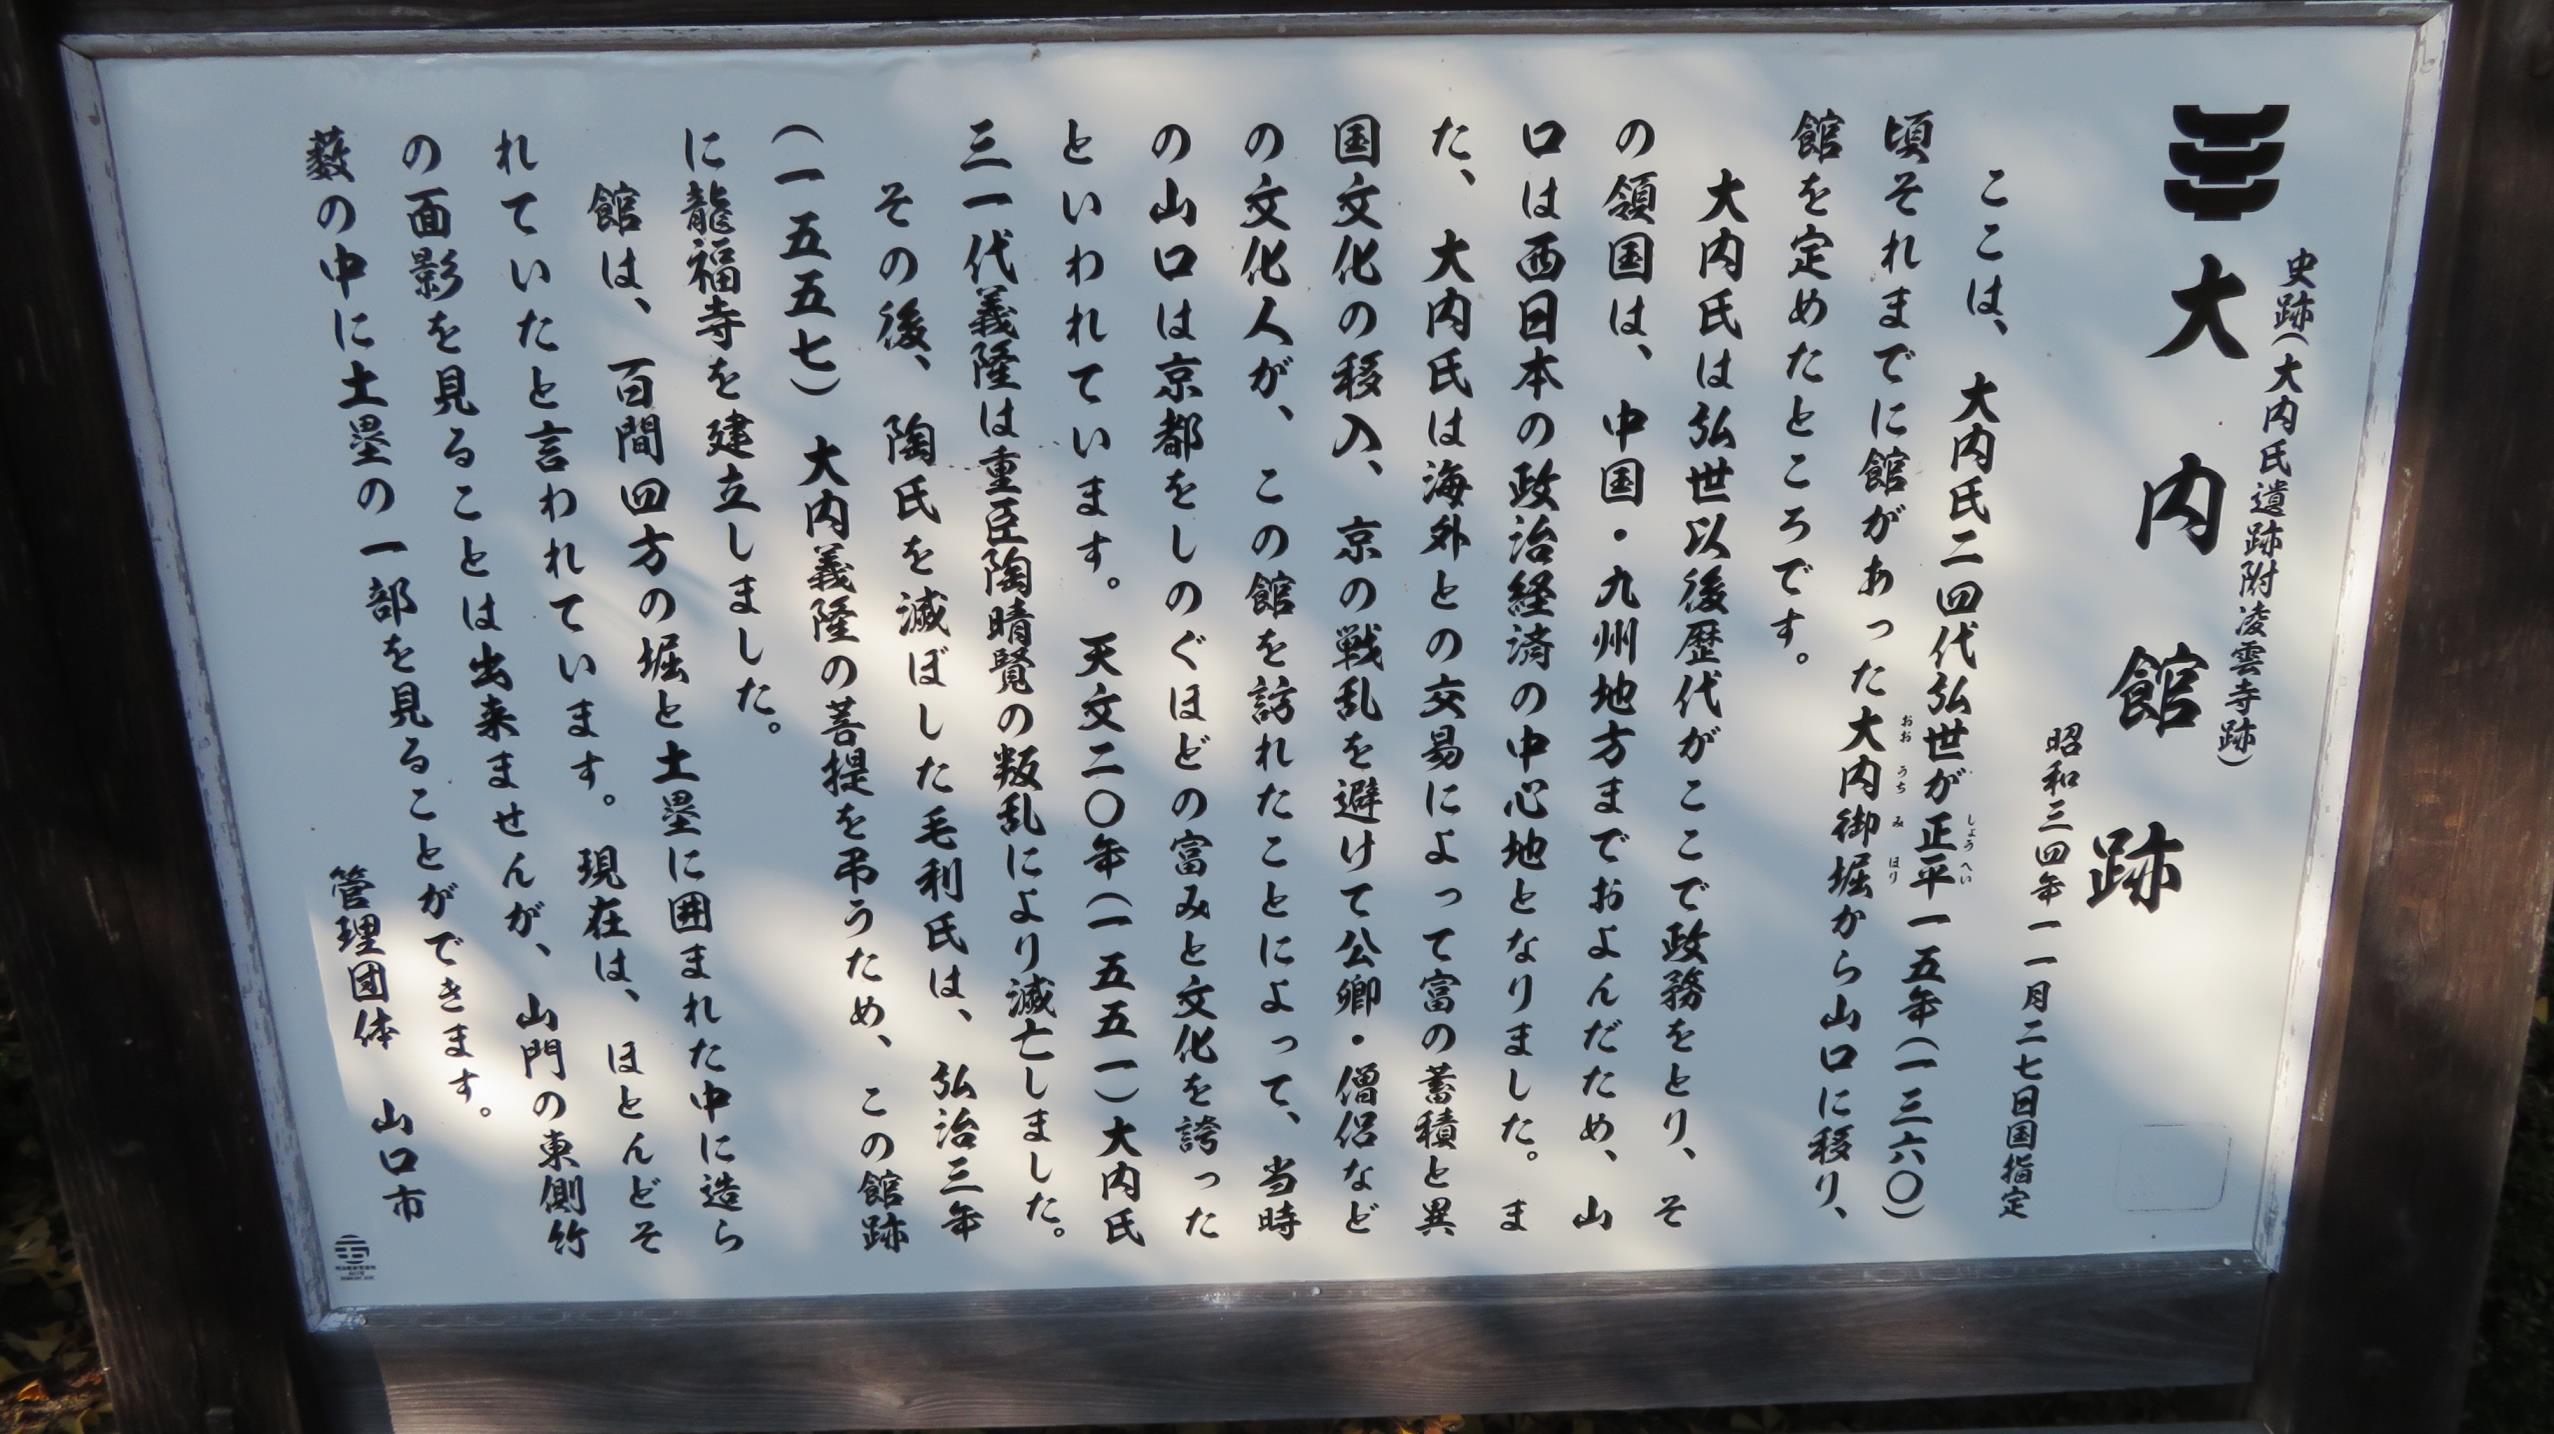 史跡(大内氏遺跡附凌雲寺跡)
大内館跡
昭和三四年一一月二七日国指定
ここは、大内氏二四代弘世が正平一五年(一三六〇)
しょうへい
頃それまでに館があった大内御堀から山口に移り、
おおうちみほり
館を定めたところです。
大内氏は弘世以後歴代がここで政務をとり、そ
の領国は、中国・九州地方までおよんだため、山
口は西日本の政治経済の中心地となりました。ま
た、大内氏は海外との交易によって富の蓄積と異
国文化の移入、京の戦乱を避けて公卿・僧侶など
の文化人が、この館を訪れたことによって、当時
の山口は京都をしのぐほどの富みと文化を誇った
といわれています。天文二〇年(一五五一)大内氏
三一代義隆は重臣陶晴賢の叛乱により滅亡しました。
その後、陶氏を滅ぼした毛利氏は、弘治三年
(一五五七)大内義隆の菩提を弔うため、この館跡
に龍福寺を建立しました。
館は、百間四方の堀と土塁に囲まれた中に造ら
れていたと言われています。現在は、ほとんどそ
の面影を見ることは出来ませんが、山門の東側竹
薮の中に土塁の一部を見ることができます。
管理団体 山口市